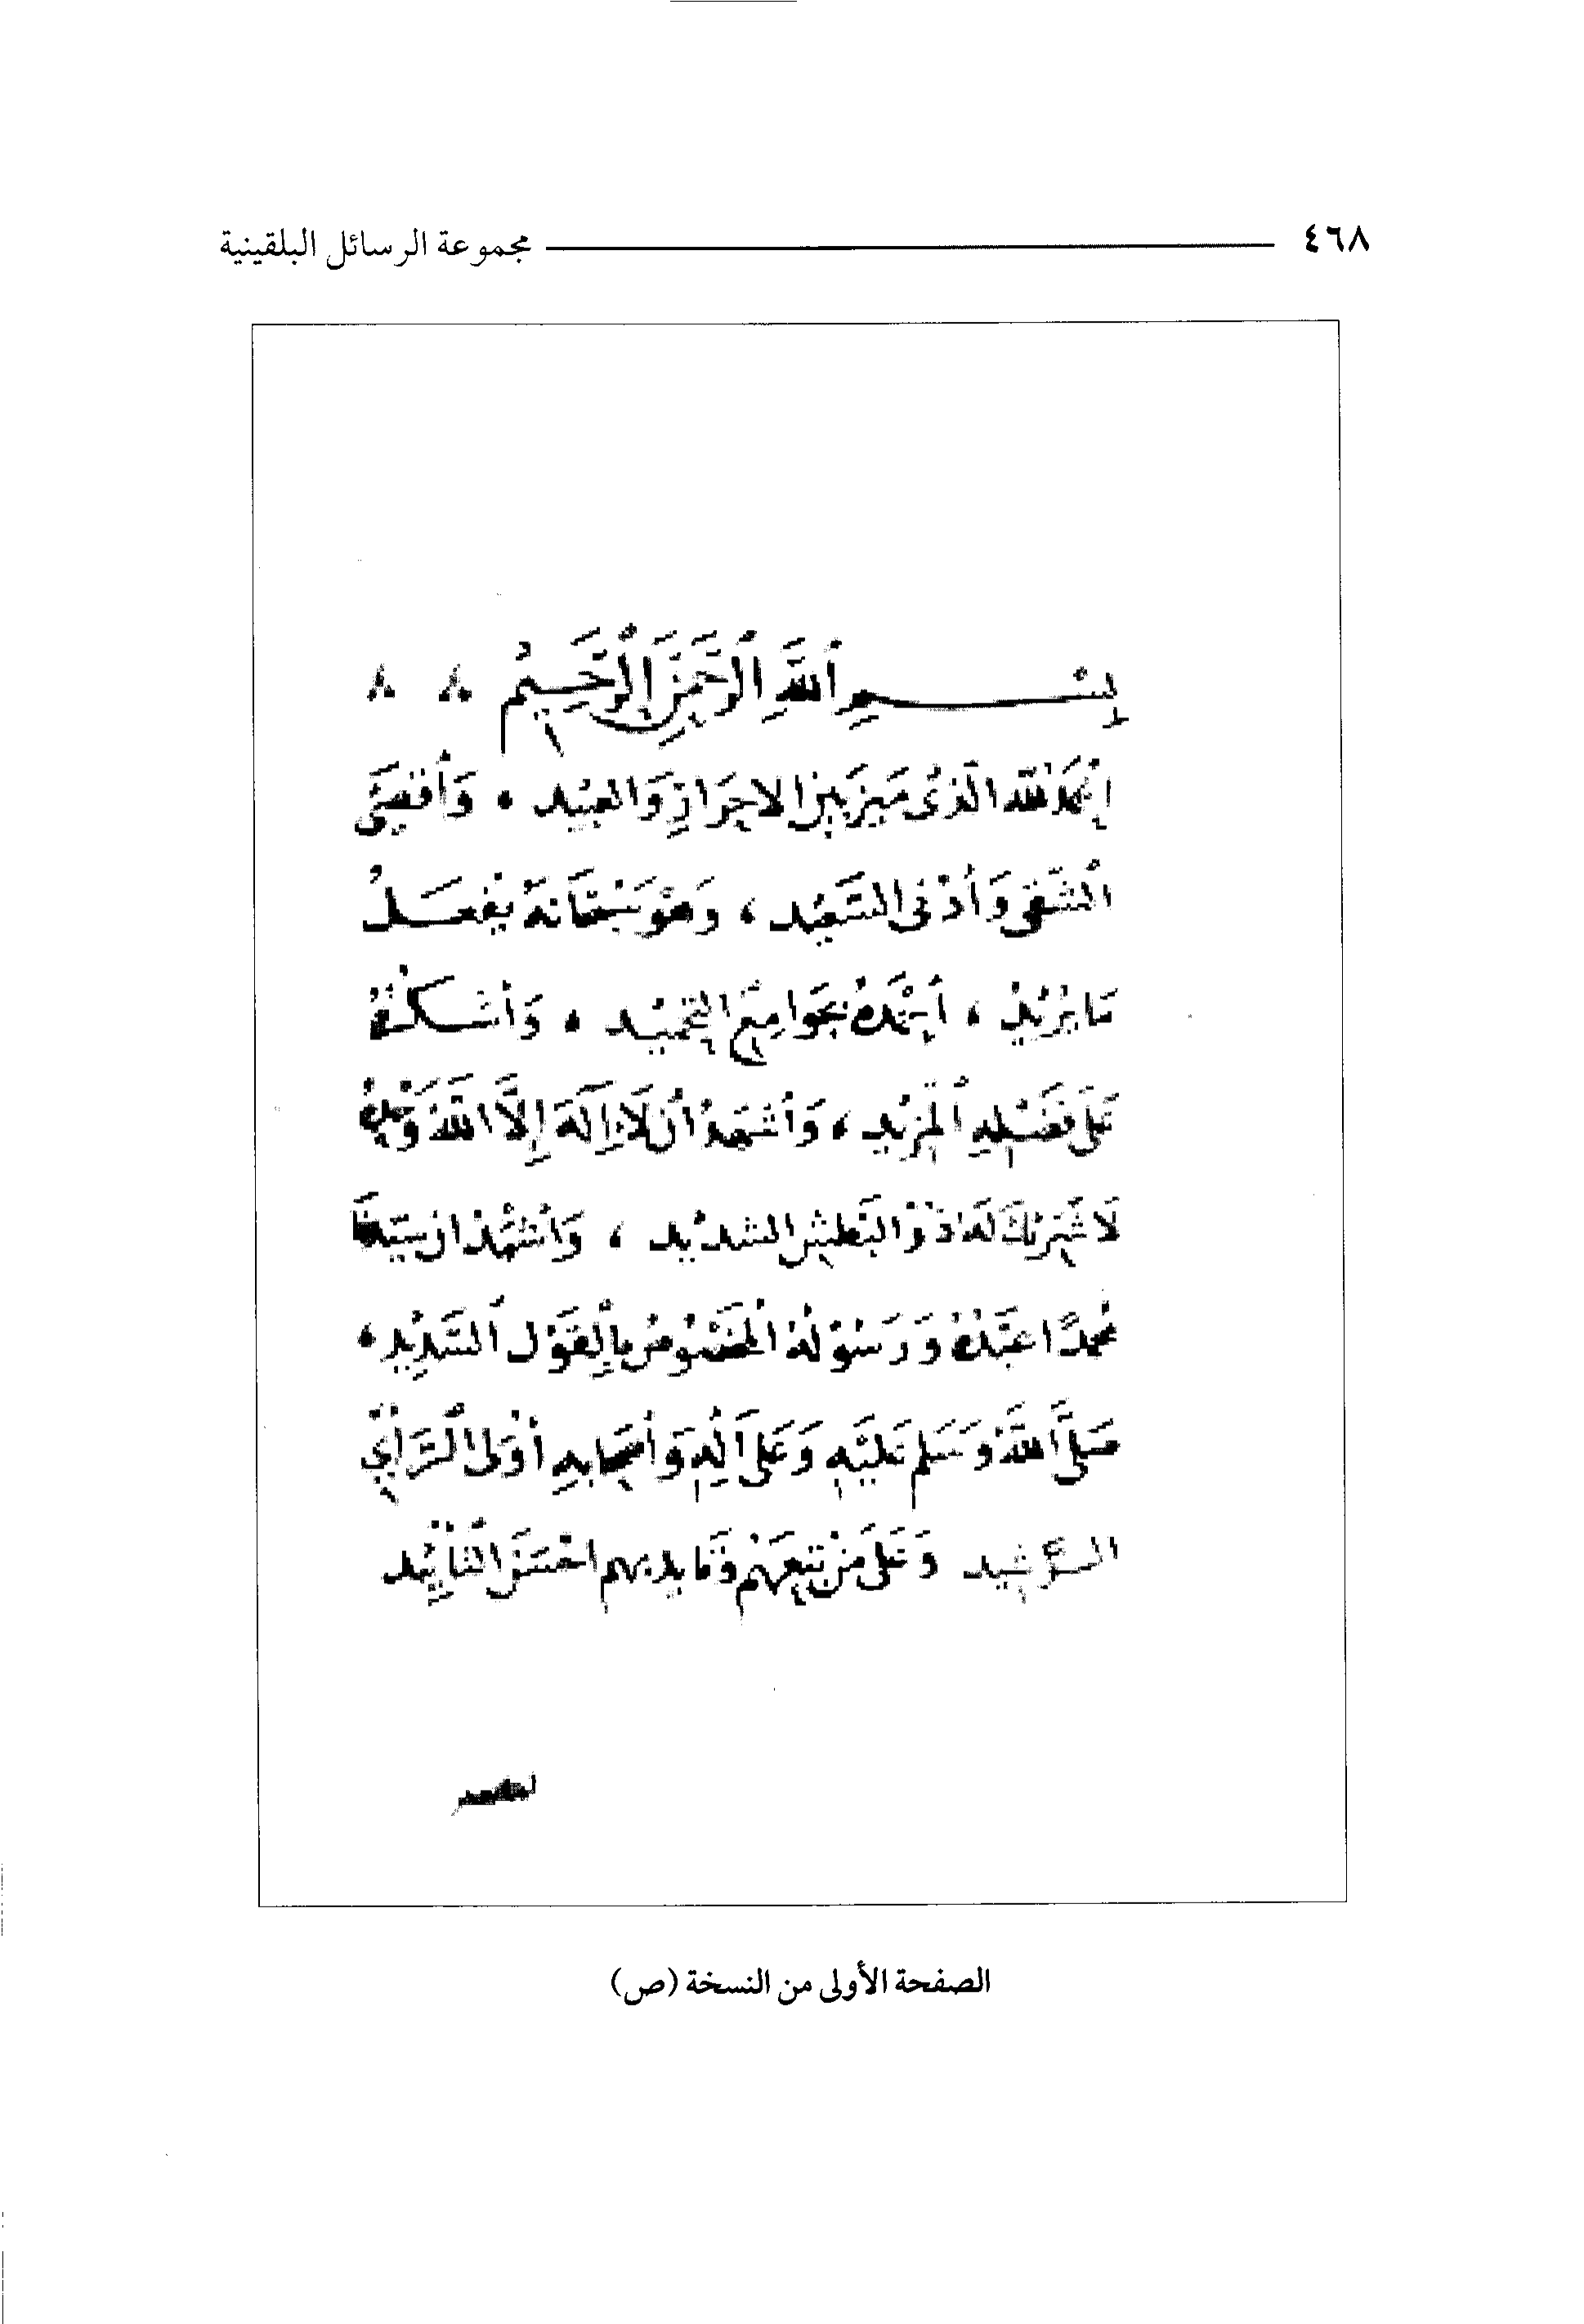 ٤٦٨ مجموعة الرسائل البلقينية
بِسْمِ ٱللَّهِ ٱلرَّحْمَنِ ٱلرَّحِيمِ
الحمد لله الذي مَيَّزَ بين الاحرَارِ وَالعبيد ، وَأقصَى
الشَّقي وَأدْنى السَّعِيْد ، وَهوَ سُبْحَانَهُ يَفْعَلُ
مَا يُرِيْدُ ، أَحْمَدُهُ بجَوَامِعِ التحميْد ، وَأشكُرُهُ
عَلَى فَضْلِهِ المَزِيْد ، وَأشْهَدُ أنْ لَا إِلَهَ إِلَّا اللهُ وَحْدَهُ
لَا شَرِيْكَ لَهُ ذُوْ البَطْشِ الشديْد ، وَأَشْهَدُ ان سَيِّدَنَا
محمدًا عَبْدُهُ وَرَسُوْلُهُ المَخْصُوْصُ بِالْقَوْلِ السَّدِيْدِ ،
صَلَّى اللَّهُ وَسَلم عَلَيْهِ وَعَلَى آلِهِ وَأصْحَابهِ أوْلى الرَّأيِ
الرَّشِيد وَعَلَى مَنْ تَبِعَهُمْ وَقَايد بهم احْسَنَ التَّأيِيْد
الصفحة الأولى من النسخة (ص)